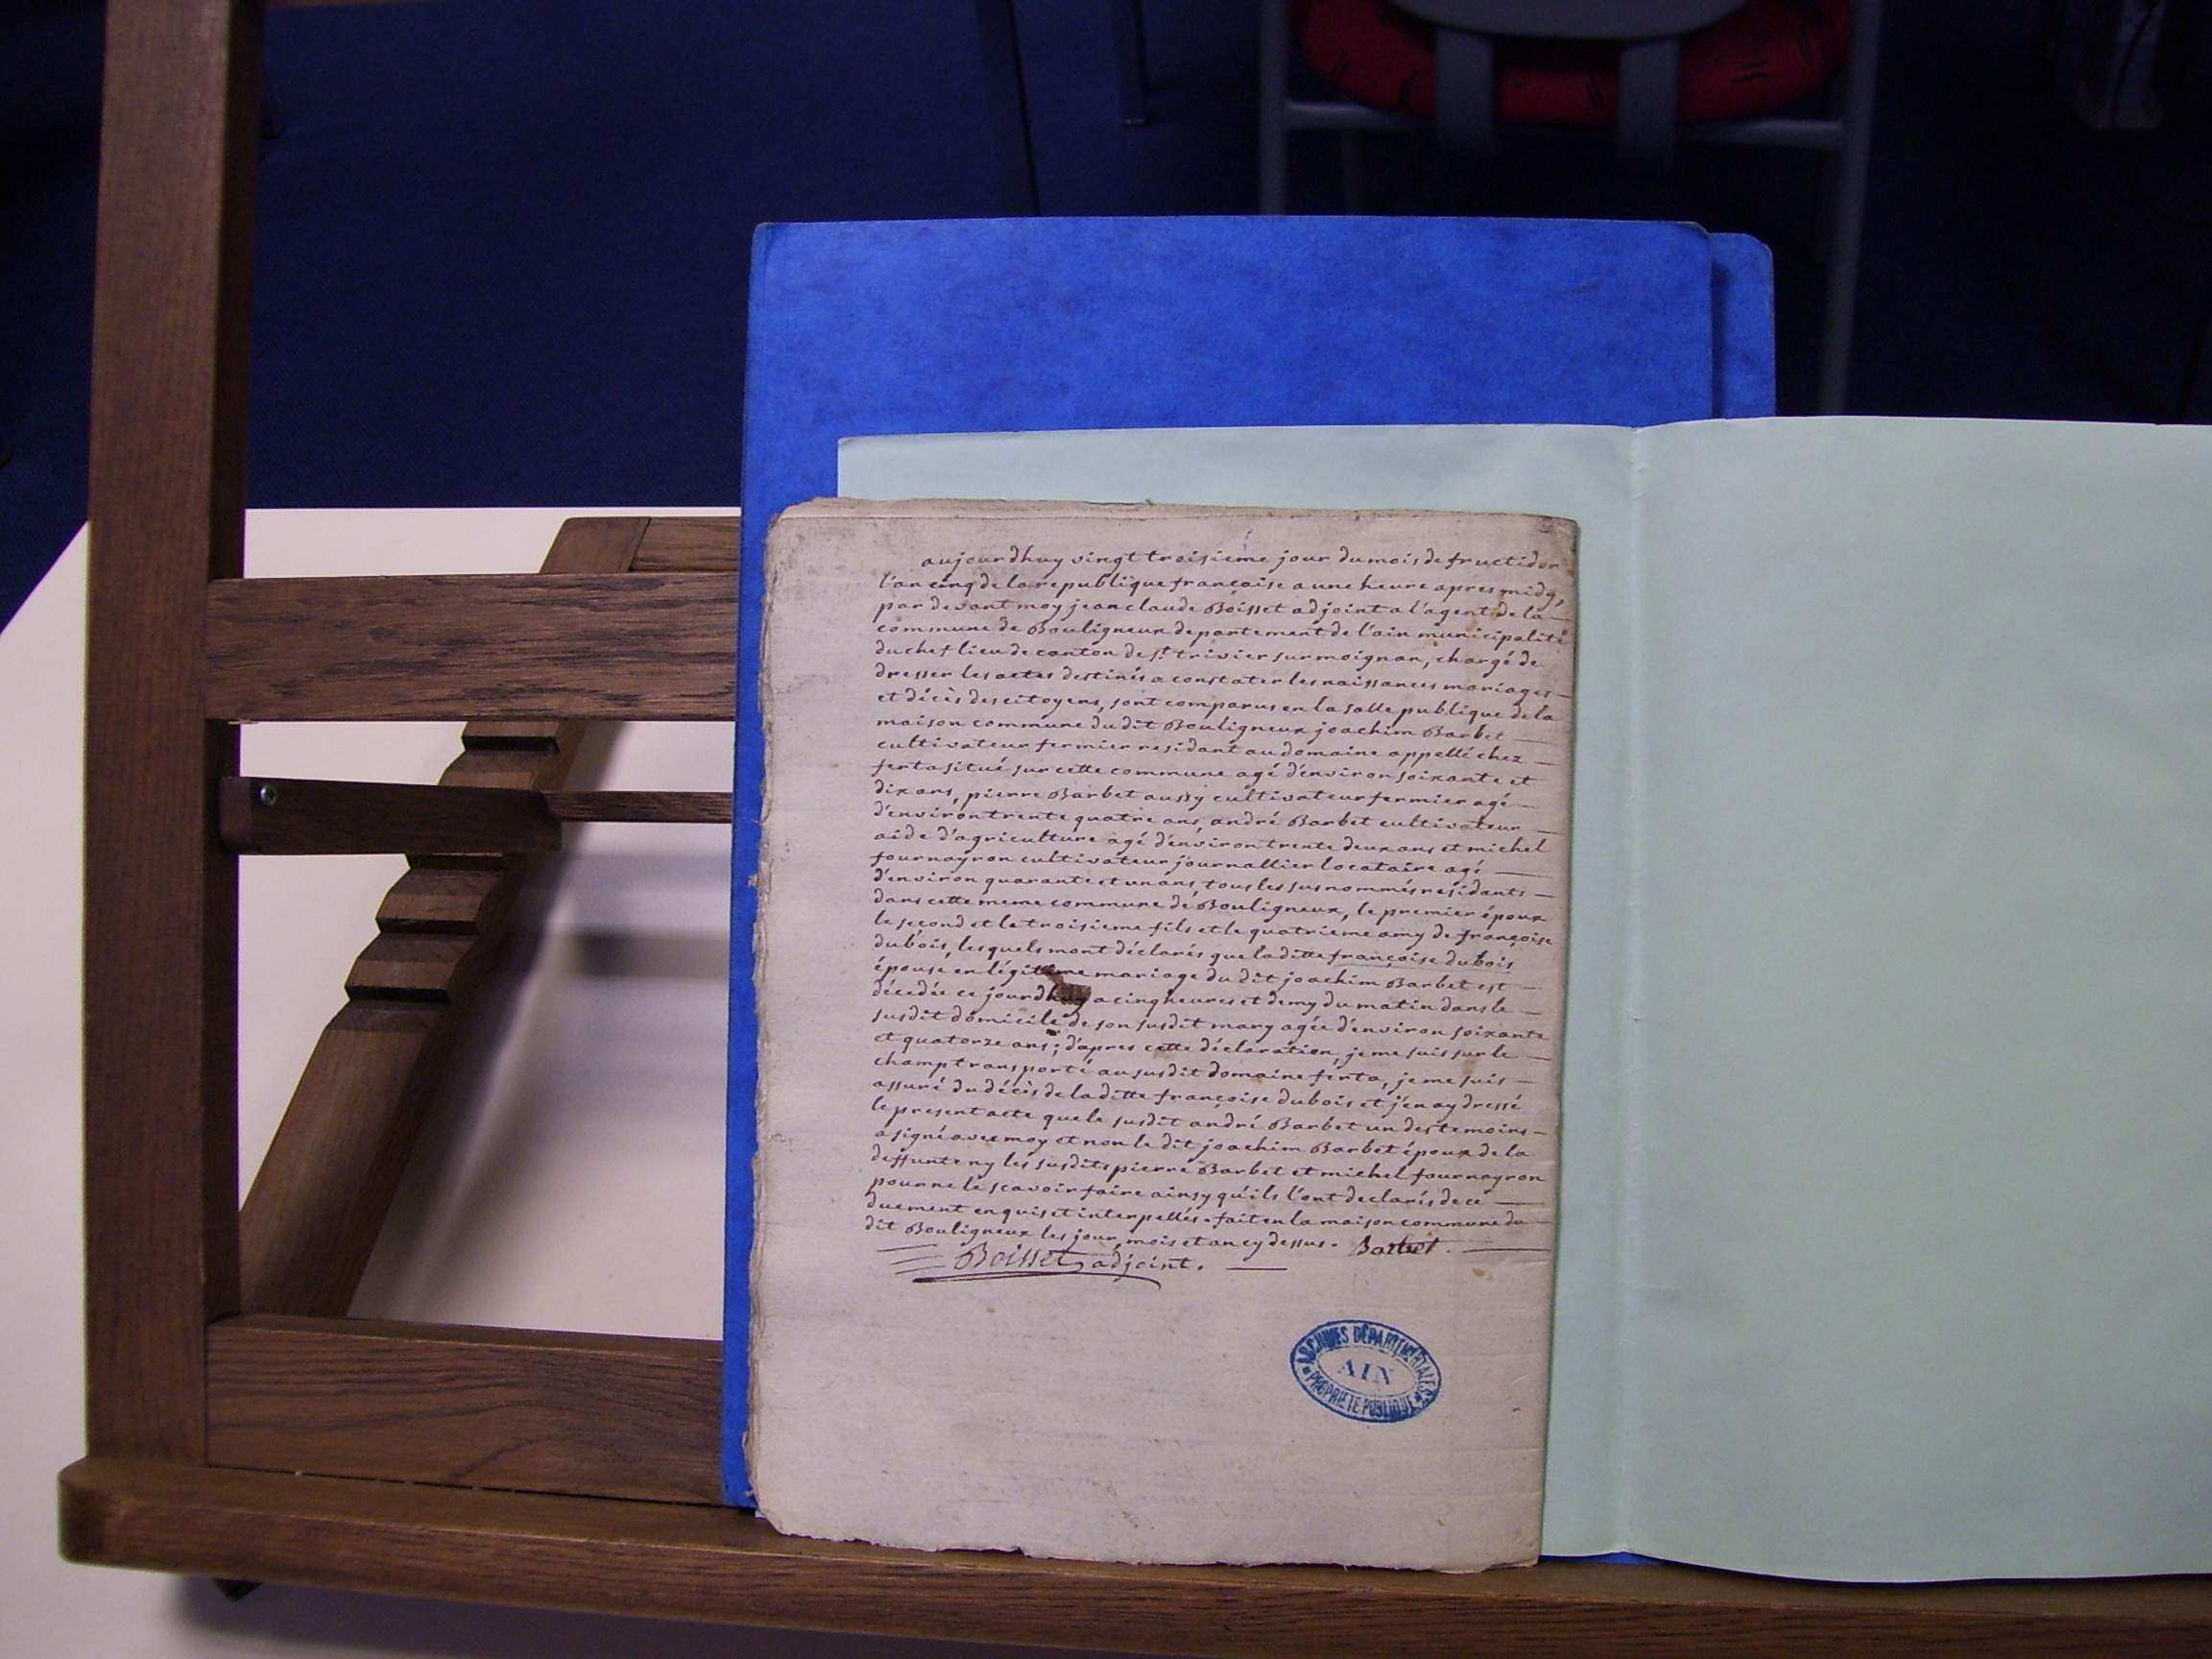 aujourdhuy vingt troisieme jour du mois de fructidor
l'an cinq de la republique françoise a une heure apres midy,
par devant moy jean claude Boisset adjoint a l'agent de la
commune de Bouligneux departement de l'ain municipalité
du chef lieu de canton de st. trivier sur moignan, chargé de
dresser les actes destinés a constater les naissances mariages
et décès des citoyens, sont comparus en la salle publique de la
maison commune du dit Bouligneux joachim Barbet
cultivateur fermier residant au domaine appellé chez
ferta situé sur cette commune agé d'environ soixante et
dix ans, pierre Barbet aussy cultivateur fermier agé
d'environ trente quatre ans, andré Barbet cultivateur
aide d'agriculture agé d'environ trente deux ans et michel
fournayron cultivateur journallier locataire agé
d'environ quarante et un ans, tous les susnommés residants
dans cette meme commune de Bouligneux, le premier époux
le second et le troisieme fils et le quatrieme amy de françoise
dubois, lesquels m'ont déclarés que la ditte françoise dubois
épouse en légitime mariage du dit joachim Barbet est
décedée ce jourdhuy a cinq heures et demy du matin dans le
susdit domicile de son susdit mary agée d'environ soixante
et quatorze ans; d'apres cette déclaration, je me suis sur le
champ transporté au susdit domaine ferta, je me suis
assuré du décès de la ditte françoise dubois et j'en ay dressé
le present acte que le susdit andré Barbet un des temoins
a signé avec moy et non le dit joachim Barbet époux de la
deffunte ny les susdits pierre Barbet et michel fournayron
pour ne le scavoir faire ainsy qu'ils l'ont declarés de ce
duement enquis et interpellés. fait en la maison commune du
dit Bouligneux les jour, mois et an cy dessus. Barbet.
Boisset, adjoint.
ARCHIVES DÉPARTEMENTALES
AIN
PROPRIETE PUBLIQUE